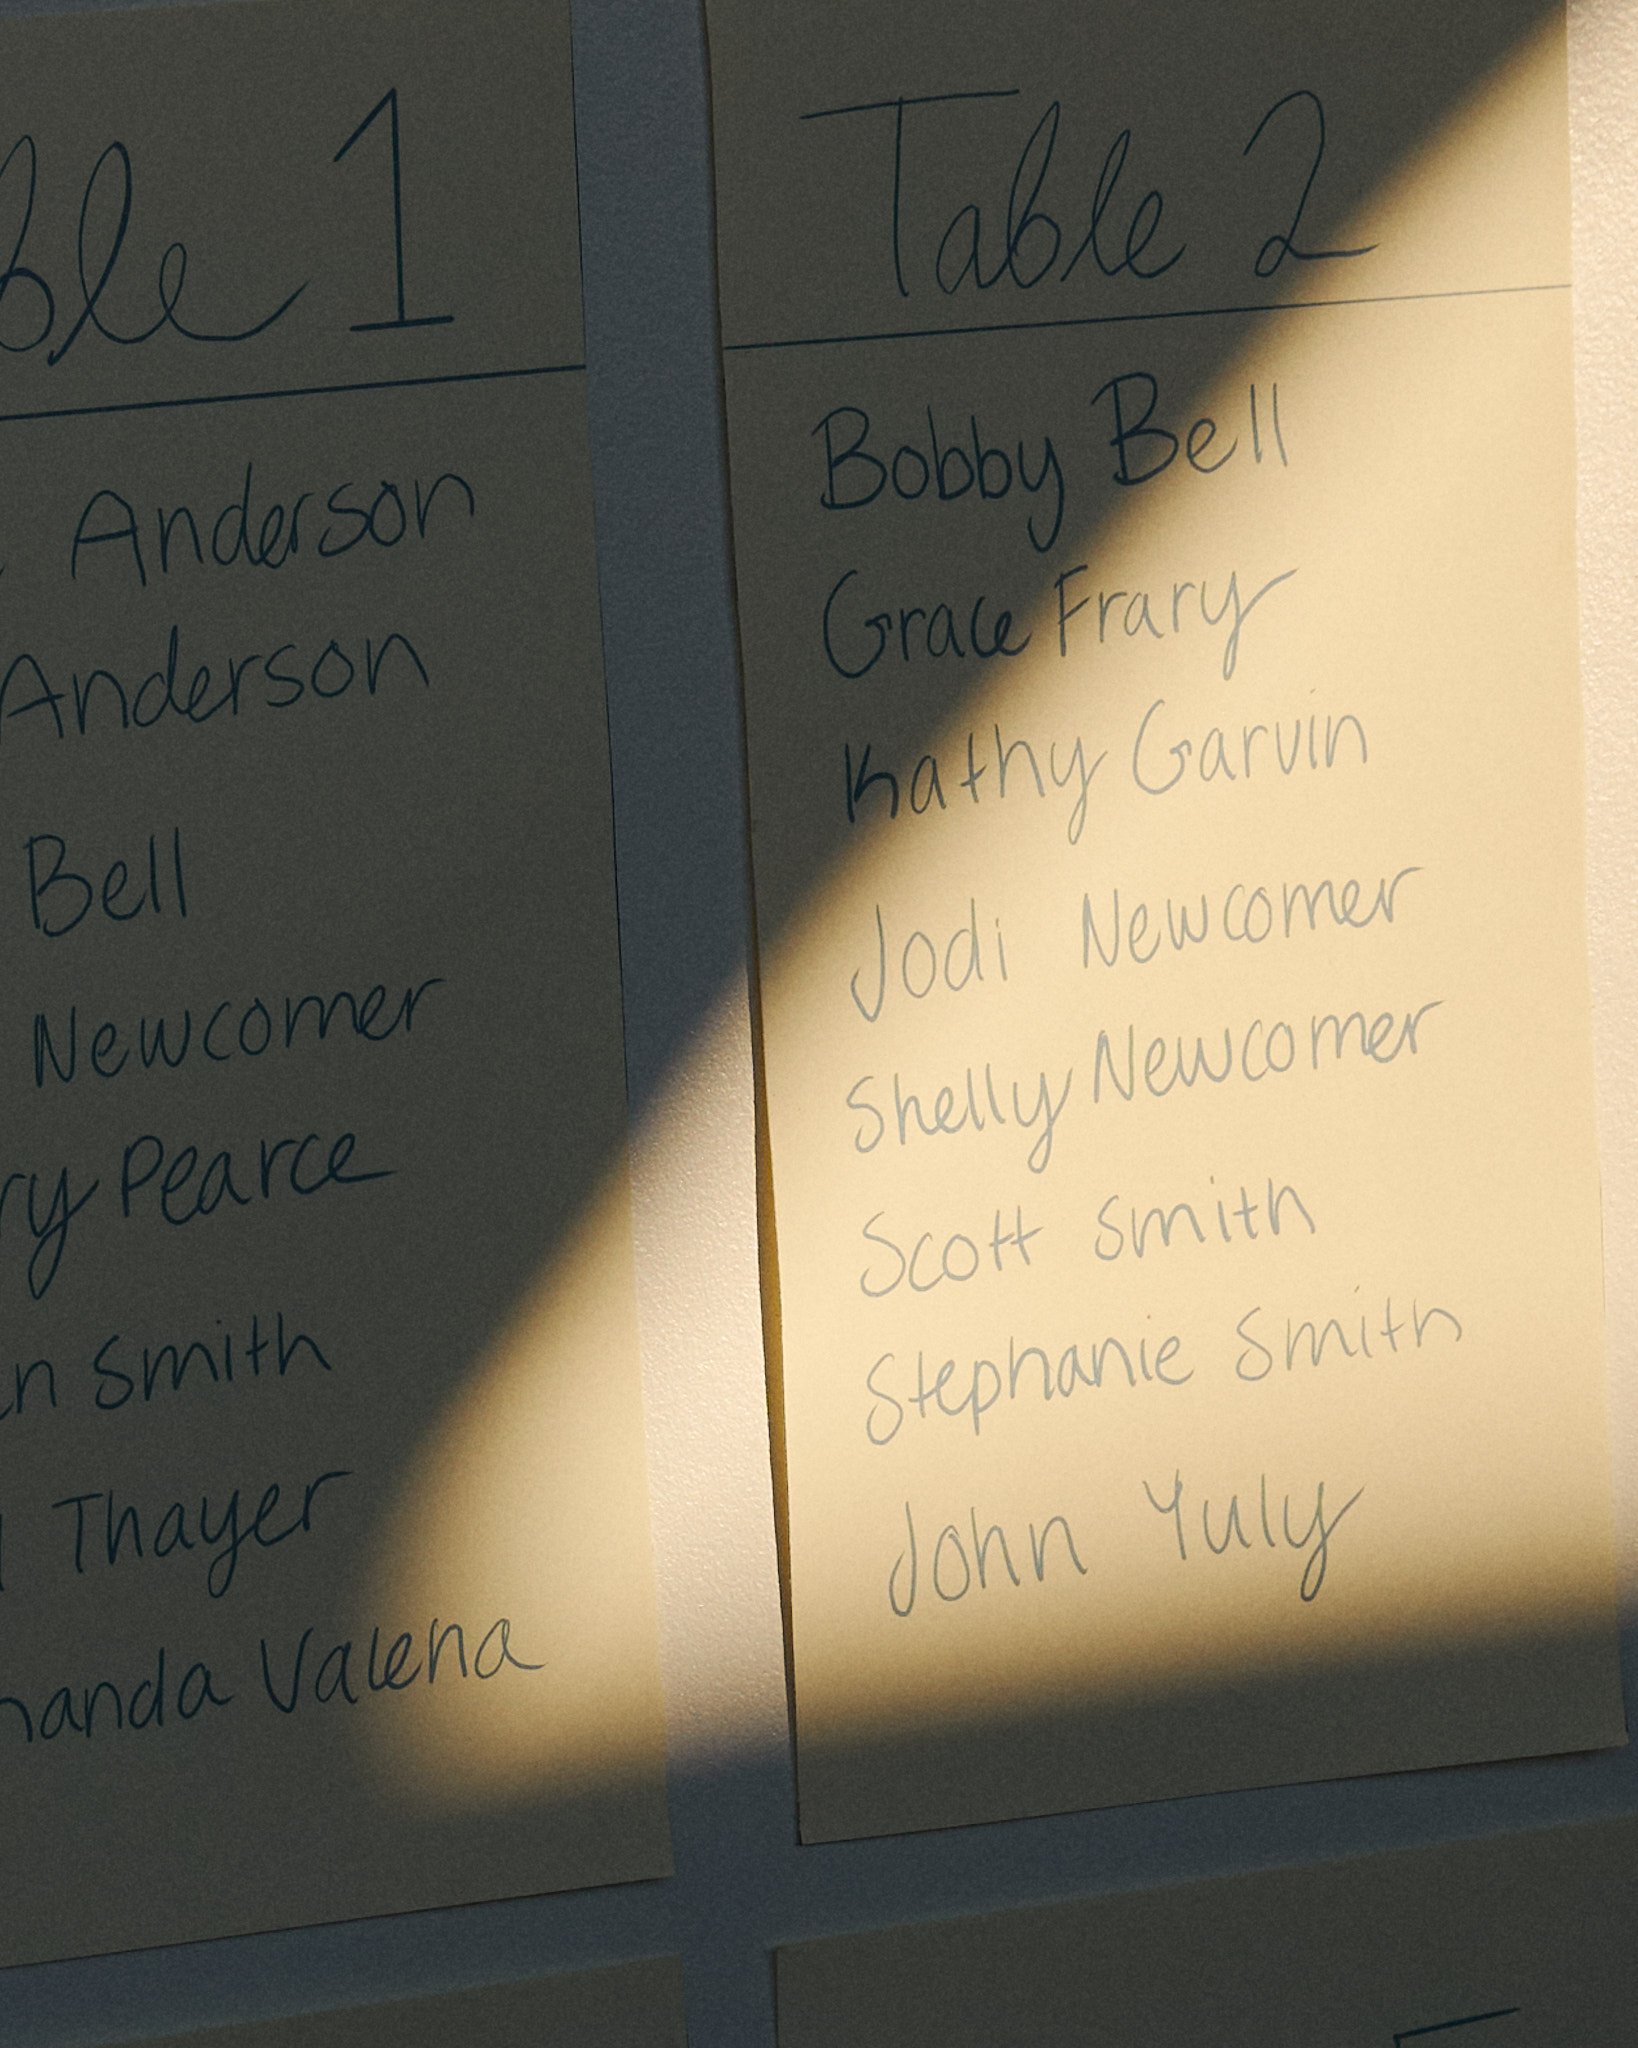 1
Anderson
Anderson
Bell
Newcomer
Pearce
Smith
Thayer
Valena
Table 2
Bobby Bell
Grace Frary
Kathy Garvin
Jodi Newcomer
Shelly Newcomer
Scott Smith
Stephanie Smith
John Yuly